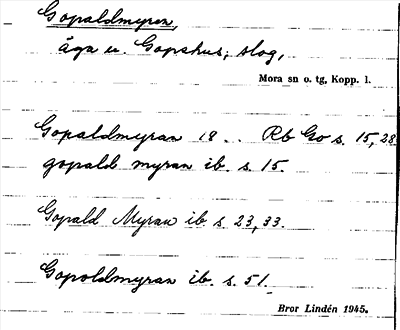 Gopaldmyran,
äga u. Gopshus; slog,
Mora sn o. tg, Kopp. l.
Gopaldmyran 18 . . Rb Go s. 15, 28
gopald myran ib. s. 15.
Gopald Myran ib. s. 23, 33.
Gopoldmyran ib. s. 51.
Bror Lindén 1945.